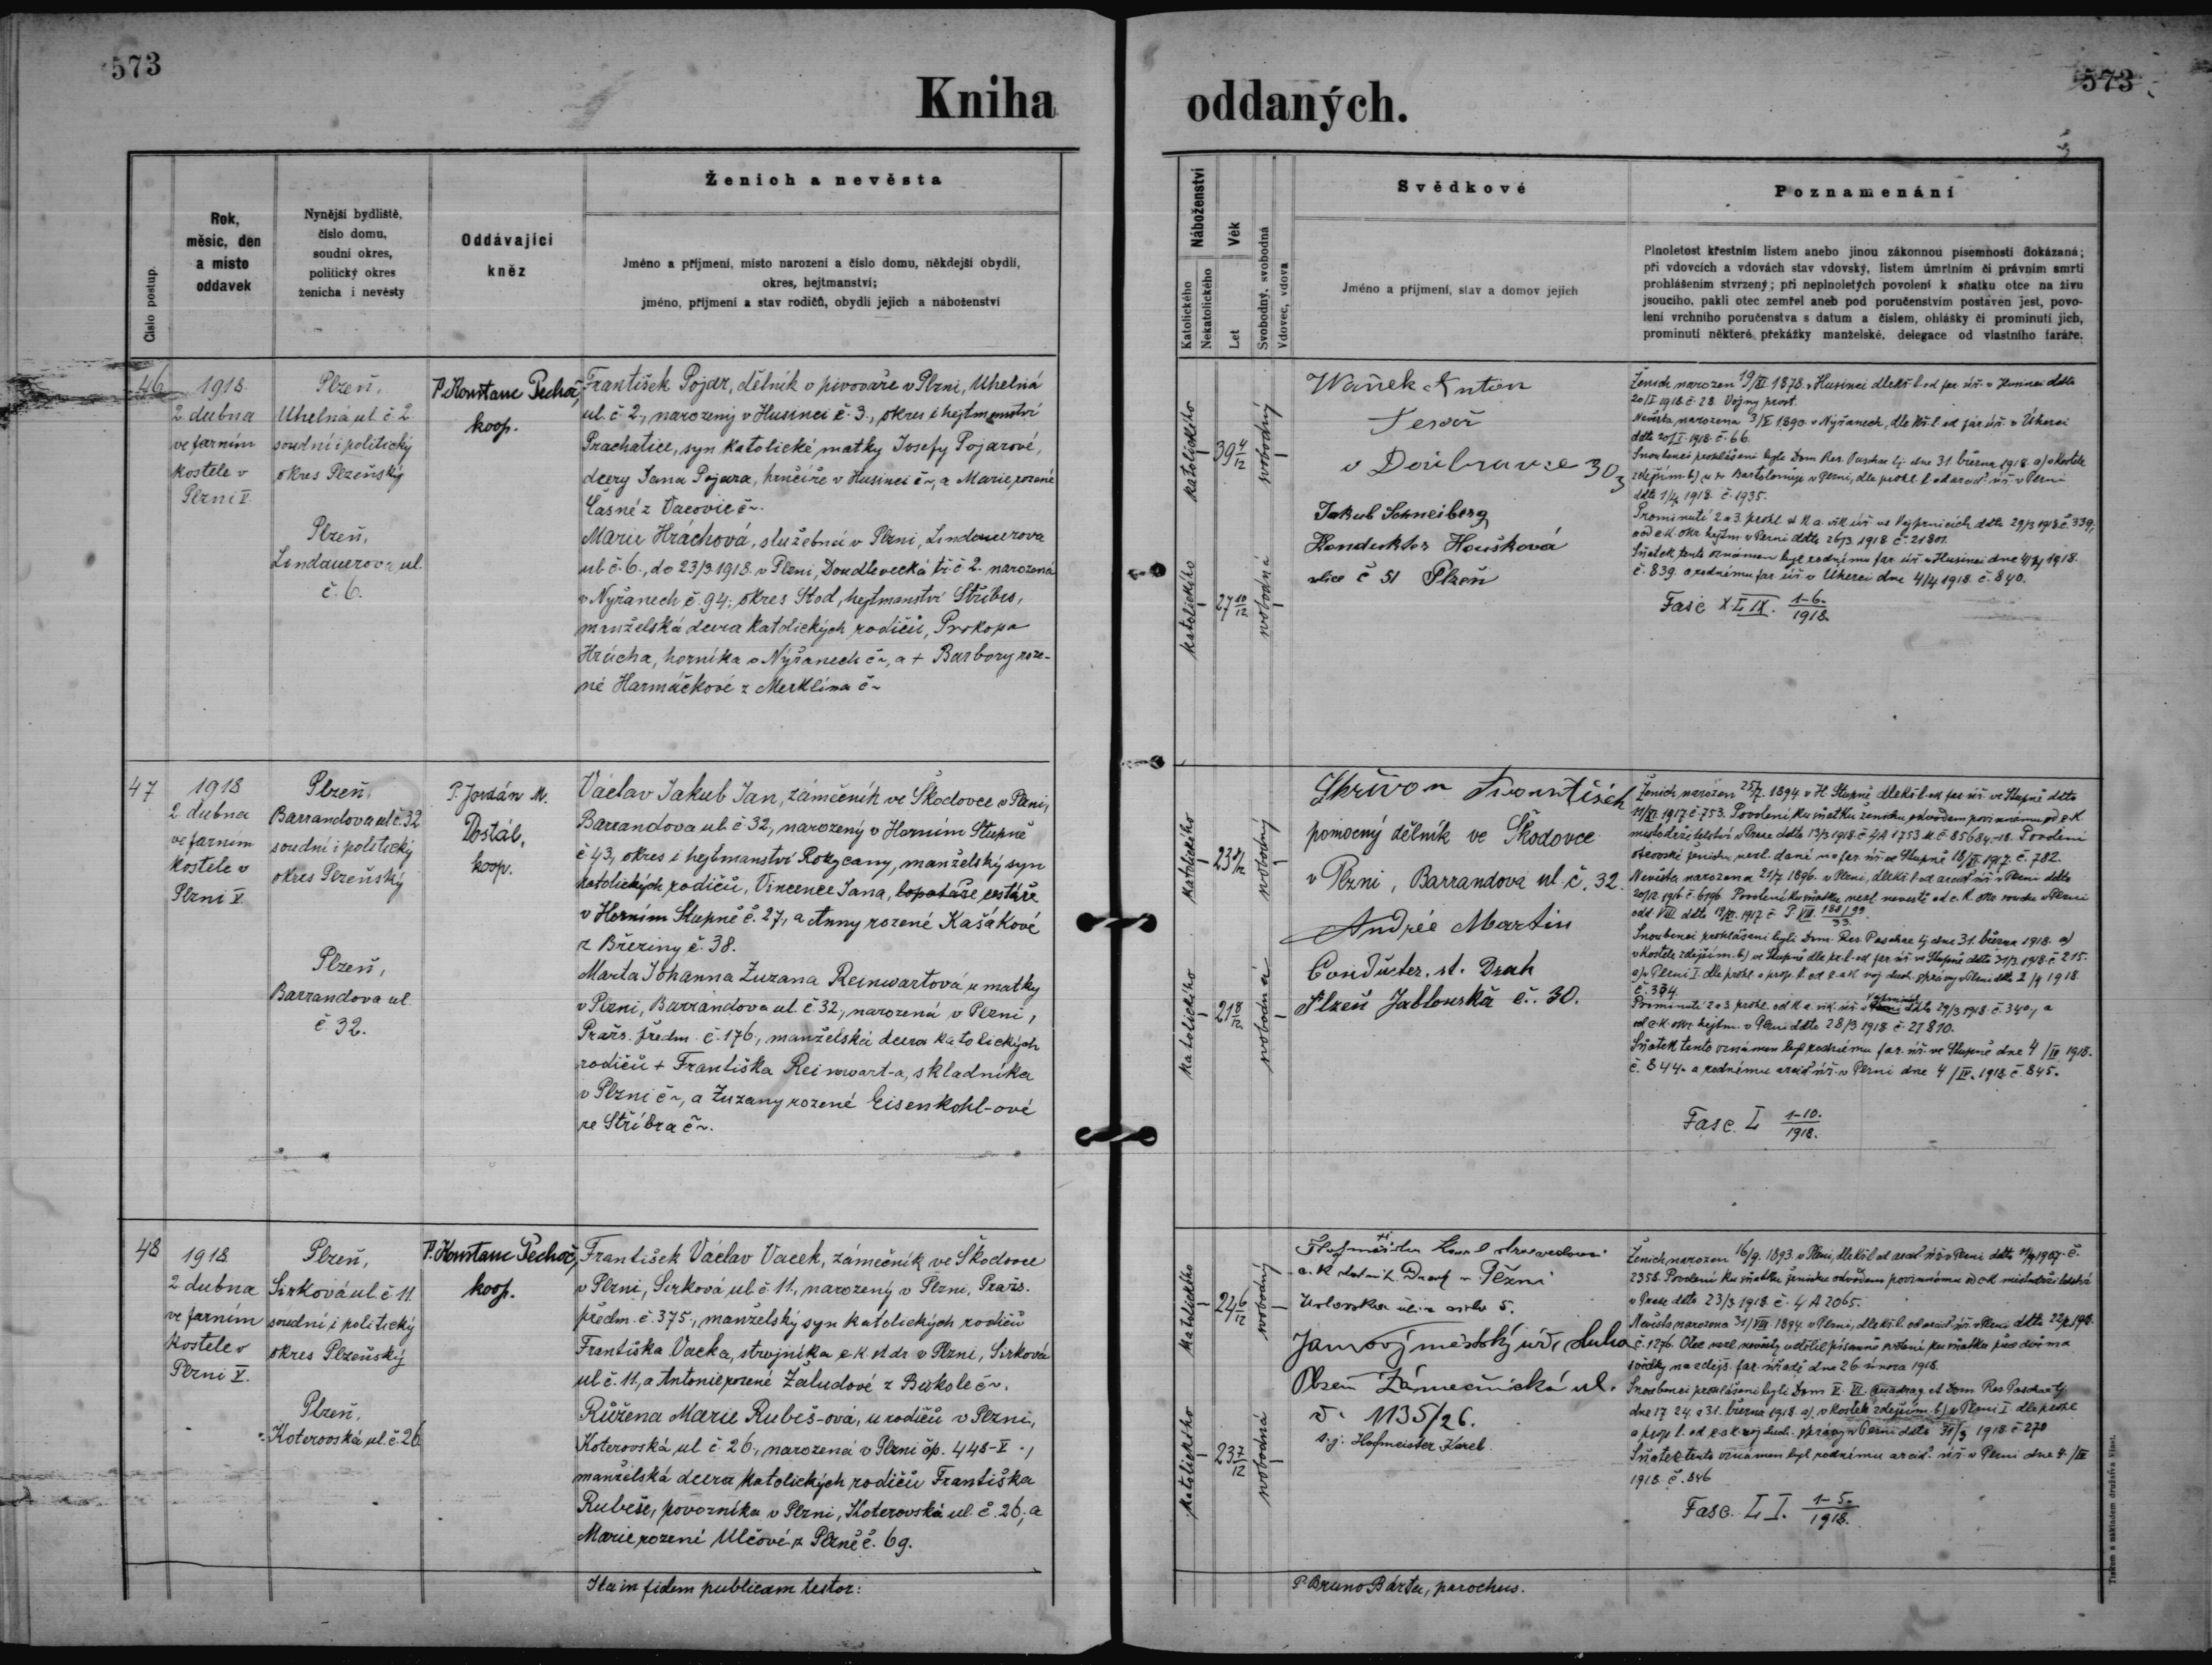 573
573
Kniha
oddaných.
Číslo postup.
Rok,
měsíc, den
a místo
oddavek
Nynější bydliště,
číslo domu,
soudní okres,
politický okres
ženicha i nevěsty
Oddávající
kněz
Ženich a nevěsta
Jméno a příjmení, místo narození a číslo domu, někdejší obydlí,
okres, hejtmanství;
jméno, příjmení a stav rodičů, obydlí jejich a náboženství
Náboženství
Katolického
Nekatolického
Věk
Let
Svobodný, svobodná
Vdovec, vdova
Svědkové
Jméno a příjmení, stav a domov jejich
Poznamenání
Plnoletost křestním listem anebo jinou zákonnou písemností dokázaná;
při vdovcích a vdovách stav vdovský, listem úmrtním či právním smrti
prohlášením stvrzený; při neplnoletých povolení k sňatku otce na živu
jsoucího, pakli otec zemřel aneb pod poručenstvím postaven jest, povo-
lení vrchního poručenstva s datum a číslem, ohlášky či prominutí jich,
prominutí některé překážky manželské, delegace od vlastního faráře.
46
1918
2 dubna
ve farním
kostele v
Plzni V.
Plzeň,
Uhelná ul. č. 2
soudní i politický
okres Plzeňský
Plzeň,
Lindauerova ul.
č. 6.
P. Konstanc Pechoč,
koop.
František Pojar, dělník v pivováře v Plzni, Uhelná
ul. č. 2., narozený v Husinci č. 3., okres i hejtmanství
Prachatice, syn katolické matky Josefy Pojarové,
dcery Jana Pojara, hrnčíře v Husinci č~, a Marie rozené
Časné z Vacovic č~.
Marie Hráchová, služebná v Plzni, Lindauerova
ul. č. 6., do 23/3 1918. v Plzni, Doudlevecká tř. č. 2. narozená
v Nýřanech č. 94., okres Stod, hejtmanství Stříbro,
manželská dcera katolických rodičů, Prokopa
Hrácha, horníka v Nýřanech č~, a + Barbory roze-
né Harmáčkové z Merklína č~
katolického
39 4/12
svobodný
katolického
27 10/12
svobodná
Waňek Anton
v Doubravce 303
Jakub Schneiberg
Konduktor Houšková
ulice č 51 Plzeň
Ženich narozen 19/XI 1878. v Husinci dle kř. l. od far. úř. v Husinci ddto
20/I 1918. č. 28. Vojny prost.
Nevěsta narozena 3/V 1890. v Nýřanech, dle kř. l. od far. úř. v Úherci
ddto 20/I 1918. č. 66.
Snoubenci prohlášeni byli Dom. Res. Paschae tj. dne 31. března 1918. a) v kostele
zdejším. b) u sv. Bartoloměje v Plzni, dle prohl. l. od arcid. úř. v Plzni
ddto 1/4 1918. č. 1935.
Prominutí 2 a 3. prohl. od k. a. vik. úř. ve Vejprnicích ddto 29/3 1918 č. 339.,
a od c. k. okr. hejtm. v Plzni ddto 26/3. 1918 č. 21801.
Sňatek tento oznámen byl rodnému far. úř. v Husinci dne 4/4 1918.
č. 839. a rodnému far. úř. v Úherci dne 4/4 1918. č. 840.
Fasc XLIX. 1-6./1918.
47
1918
2 dubna
ve farním
kostele v
Plzni V.
Plzeň,
Barrandova ul č. 32
soudní i politický
okres Plzeňský
Plzeň,
Barrandova ul.
č. 32.
P. Jordán M.
Dostál,
koop.
Václav Jakub Jan, zámečník ve Škodovce v Plzni,
Barrandova ul. č 32, narozený v Horním Stupně
č 43, okres i hejtmanství Rokycany, manželský syn
katolických rodičů, Vincence Jana, lopatáře cestáře
v Horním Stupně č. 27., a Anny rozené Kašákové
z Březiny č. 38.
Marta Johanna Zuzana Reinwartová, u matky
v Plzni, Barrandova ul. č 32., narozená v Plzni,
Pražs. předm. č. 176, manželská dcera katolických
rodičů + Františka Reinwart-a, skladníka
v Plzni č~, a Zuzany rozené Eisenkohl-ové
ze Stříbra č~.
katolického
svobodný
katolického
21 8/12
svobodná
Skřivan František
pomocný dělník ve Škodovce
v Plzni, Barrandova ul. č. 32.
Andrée Martin
Conducter. st. Drah
Plzeň Jablonská č. 30.
Ženich narozen 25/7. 1894. v H. Stupně dle kř. l. od far. úř. ve Stupně ddto
11/XI. 1917 č. 753. Povolení ku sňatku ženichu odvodem povinnému od c. k.
místodržitelství v Praze ddto 13/3 1918. č. 4A 1753 M. č. 85684-18. Povolení
Nevěsta narozena 21/7 1896. v Plzni, dle kř. l. od arcid. úř. v Plzni ddto
Snoubenci prohlášeni byli Dom. Res. Paschae tj. dne 31. března 1918. a)
v kostele zdejším. b) ve Stupně dle pr. l. od far. úř. ve Stupně ddto 31/3. 1918. č. 215.
č. 334.
od c. k. okr. hejtm. v Plzni ddto 28/3 1918 č. 21810.
Sňatek tento oznámen byl rodnému far. úř. ve Stupně dne 4/IV 1918.
č. 844. a rodnému arcid. úř. v Plzni dne 4/IV. 1918. č. 845.
Fasc. L 1-10./1918.
48
1918
2 dubna
ve farním
kostele v
Plzni V.
Plzeň,
Sirková ul. č 11
soudní i politický
okres Plzeňský
Plzeň,
Koterovská ul. č. 26
P. Konstanc Pechoč,
koop.
František Václav Vacek, zámečník ve Škodovce
v Plzni, Sirková ul. č 11., narozený v Plzni, Pražs.
předm. č. 375., manželský syn katolických rodičů
Františka Vacka, strojníka c. k. st. dr. v Plzni, Sirková
ul. č. 11, a Antonie rozené Žaludové z Bukole č~.
Růžena Marie Rubeš-ová, u rodičů v Plzni,
Koterovská ul. č. 26., narozená v Plzni čp. 448-V.,
manželská dcera katolických rodičů Františka
Rubeše, povozníka v Plzni, Koterovská ul. č. 26., a
Marie rozené Ulčové z Plzně č. 69.
katolického
24 6/12
svobodný
katolického
23 7/12
svobodná
Plzeň Zámečnická ul.
č. 1135/26.
sig: Hofmeister Karel.
Ženich narozen 16/9. 1893. v Plzni, dle kř. l. od arcid. úř. v Plzni
2358. Povolení ku sňatku ženichu odvodem povinnému od c. k. místodržitelství
v Praze ddto 23/3 1918. č. 4A 2065.
Nevěsta narozena 31/VIII. 1894. v Plzni, dle kř. l. od arcid. úř. v Plzni
svědky na zdejš. far. úřadě dne 26 února 1918.
dne 17. 24. a 31. března 1918. a) v kostele zdejším. b) v Plzni I dle prohl
Sňatek tento oznámen byl rodnému arcid. úř. v Plzni dne 4./IV
1918. č. 846
Fasc. LI. 1-5./1918.
Ita in fidem publicam testor:
P. Bruno Bárta, parochus.
Tiskem a nákladem družstva Vlast.